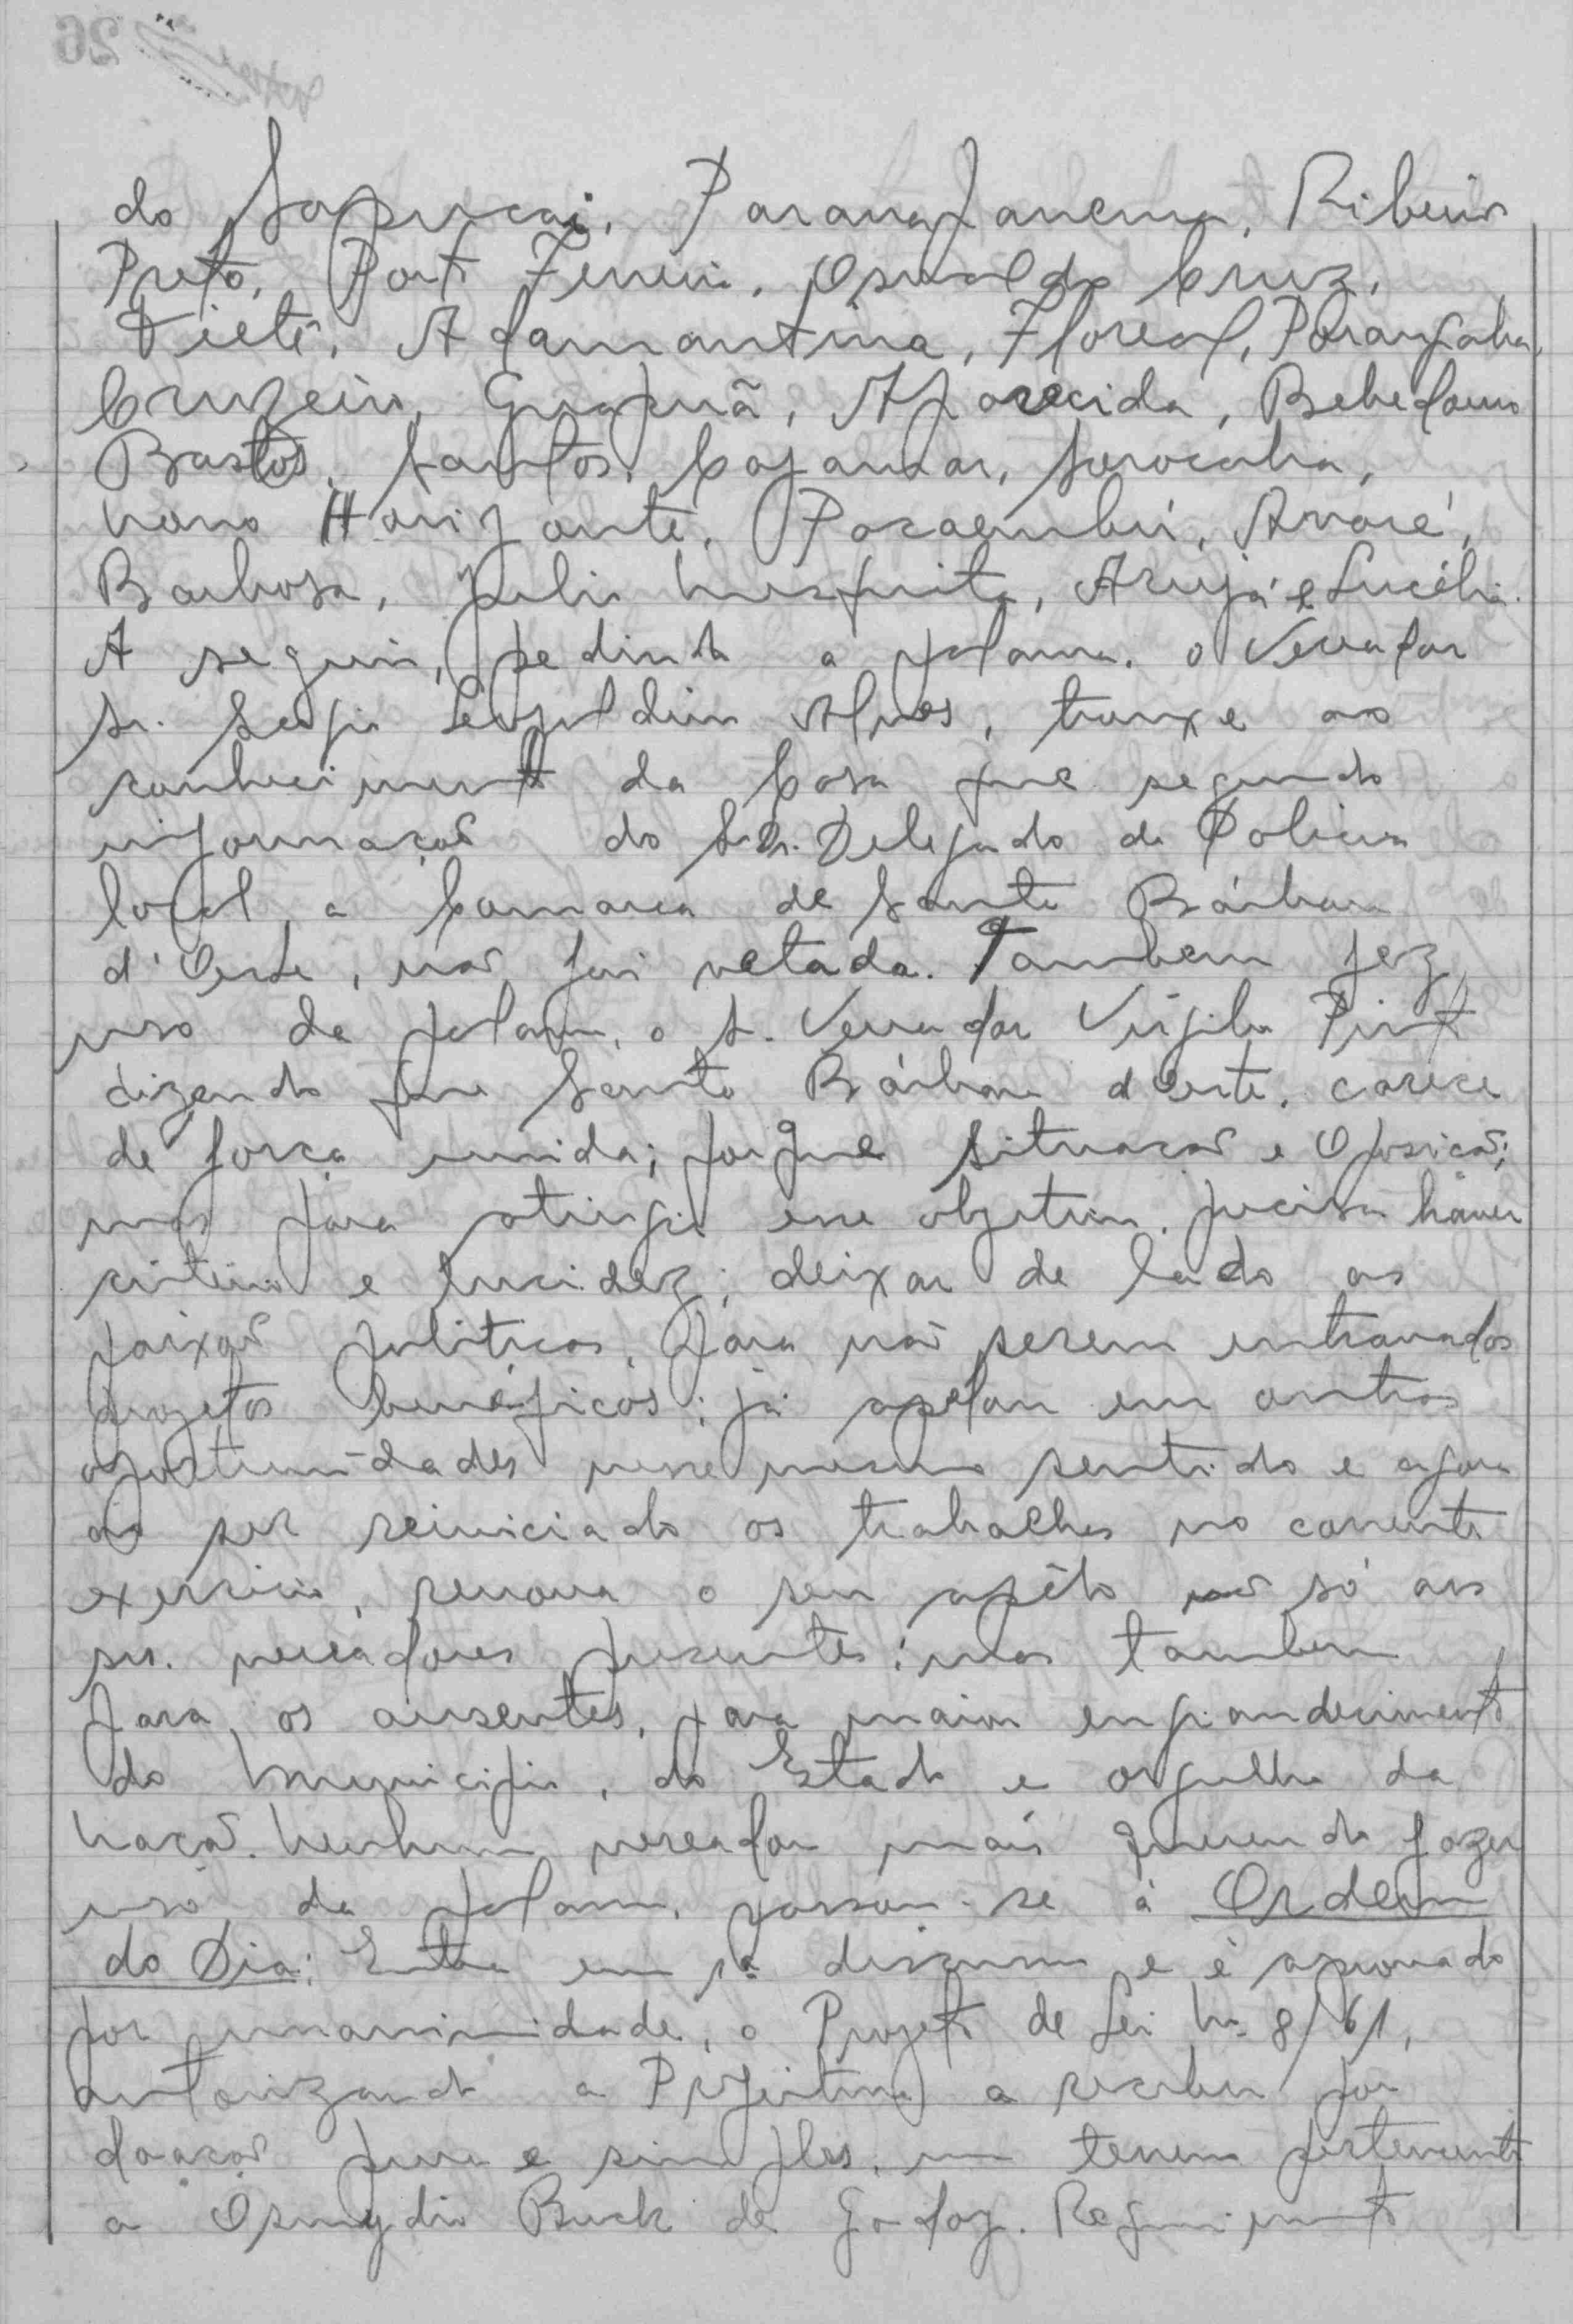 do Sapucai, Paranapanema, Ribeirão
Preto, Porto Ferreira, Osvaldo Cruz,
Tietê, Adamantina, Floreal, Porangaba,
Cruzeiro, Guapuã, Aparecida, Bebedouro
Bastos, Santos, Cajamar, Sorocaba,
Novo Horizonte, Pacaembú, Avaré,
Barbosa, Julio Mesquita, Arujá e Lucélia.
A seguir, pedindo a palavra, o Vereador
Sr. Sergio Leopoldino Alves, trouxe ao
conhecimento da Casa que segundo
informação do Sr. Dr. Delegado de Policia
local, a Comarca de Santa Bárbara
d'Oeste, não foi vetada. Tambem fez
uso da palavra, o Sr. Vereador Virgilio Pinto
dizendo que Santa Bárbara d'Oeste, carece
de força unida; porque situação e Oposição;
mas para atingir esse objetivo, precisa haver
critério e lucidez; deixar de lado as
paixões politicas, para não serem entravados
projetos benéficos; já apelou em outras
oportunidades nesse mesmo sentido e agora
ao ser reiniciado os trabalhos no corrente
exercicio, renova o seu apêlo não só aos
srs. vereadores presentes; mas tambem
para os ausentes, para maior engrandecimento
do Municipio, do Estado e orgulho da
Nação. Nenhum vereador mais querendo fazer
uso da palavra, passou-se à Ordem
do Dia: Entra em 1a. discussão e é aprovado
por unanimidade, o Projeto de Lei No. 8/61,
autorizando a Prefeitura a receber por
doação pura e simples, um terreno pertencente
a Osmydio Buck de Godoy. Requerimento